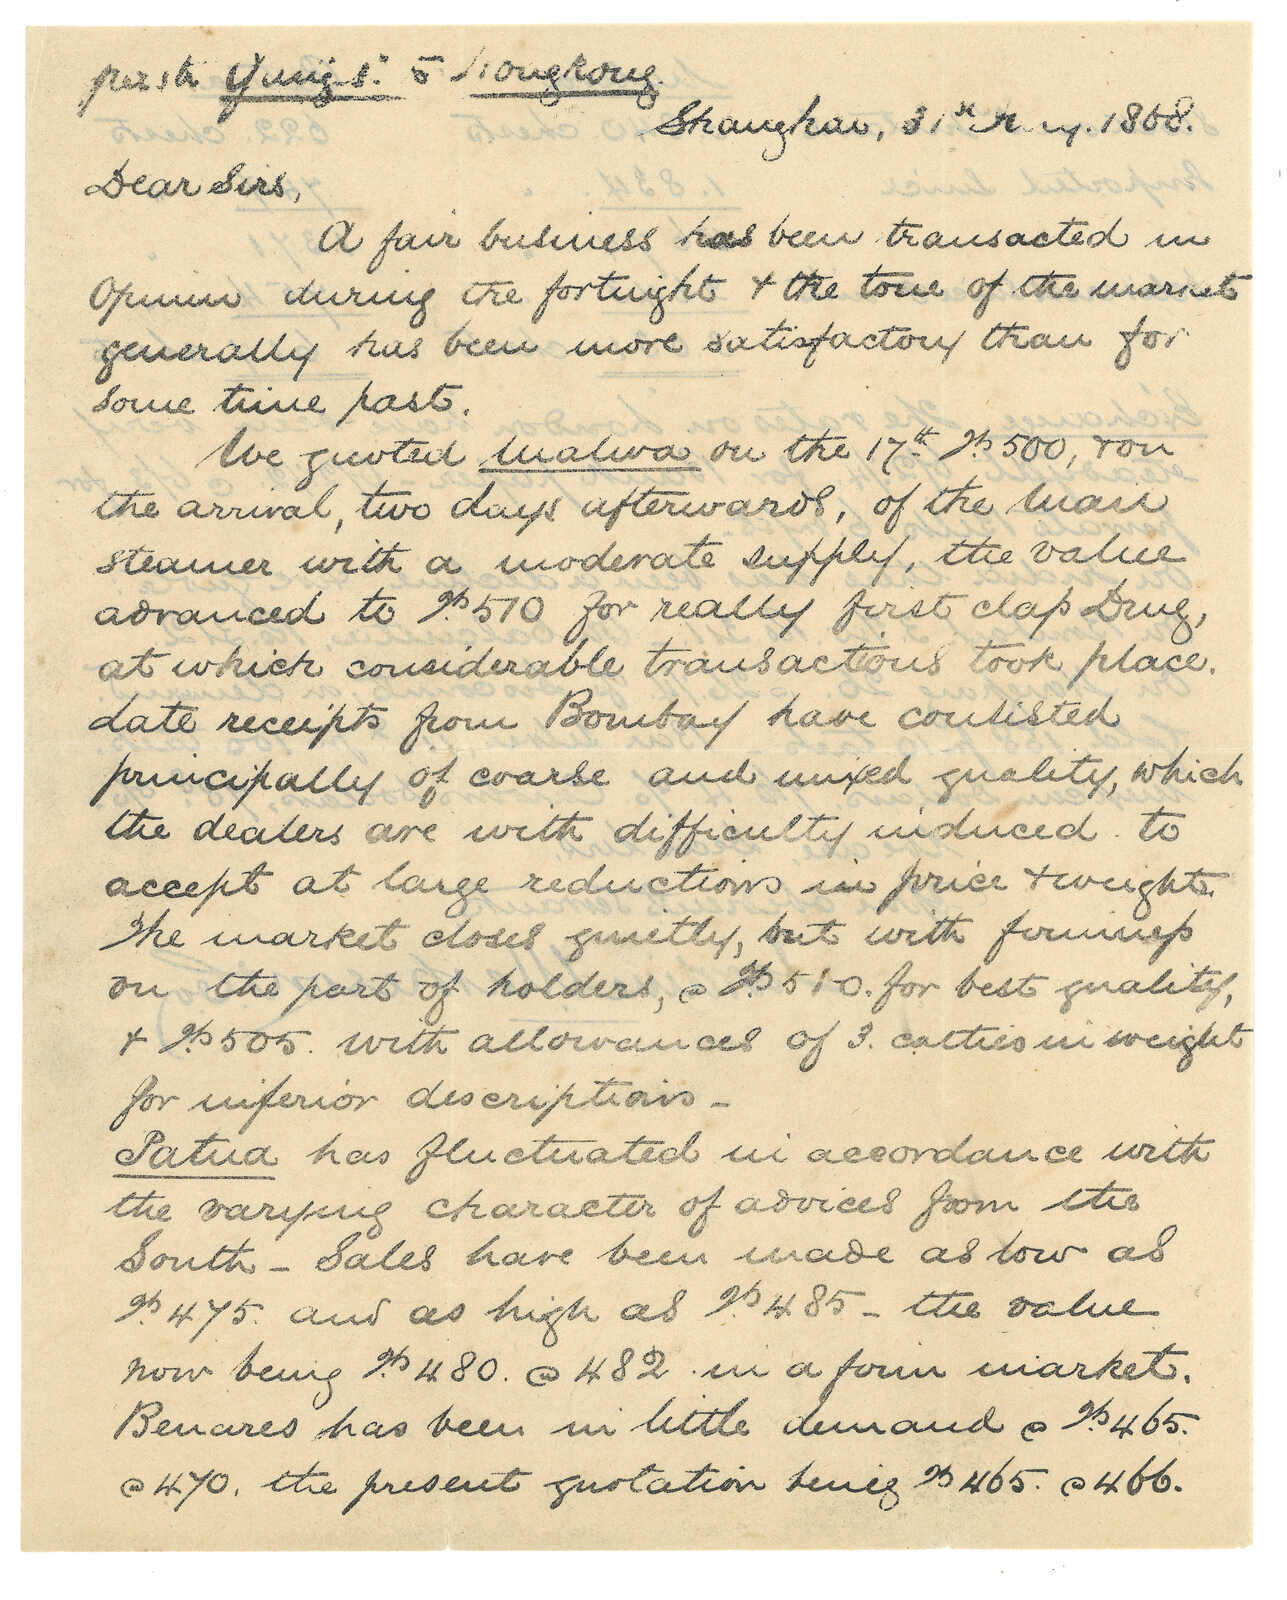 per str Yungs. to Hongkong.
Shanghai, 31st May. 1868.
Dear Sirs,
A fair business has been transacted in
Opium during the fortnight & the tone of the market
generally has been more satisfactory than for
some time past.
We quoted Malwa on the 17th Ts 500, & on
the arrival, two days afterwards, of the Mail
steamer with a moderate supply, the value
advanced to Ts 510 for really first class Drug,
at which considerable transactions took place.
Late receipts from Bombay have consisted
principally of coarse and mixed quality, which
the dealers are with difficulty induced to
accept at large reductions in price & weight.
The market closes quietly, but with firmness
on the part of holders, @ Ts 510. for best quality,
& Ts 505. with allowances of 3. catties in weight
for inferior descriptions –
Patna has fluctuated in accordance with
the varying character of advices from the
South – Sales have been made as low as
Ts 475. and as high as Ts 485 – the value
now being Ts 480. @ 482 in a firm market.
Benares has been in little demand @ Ts 465.
@ 470. the present quotation being Ts 465. @ 466.